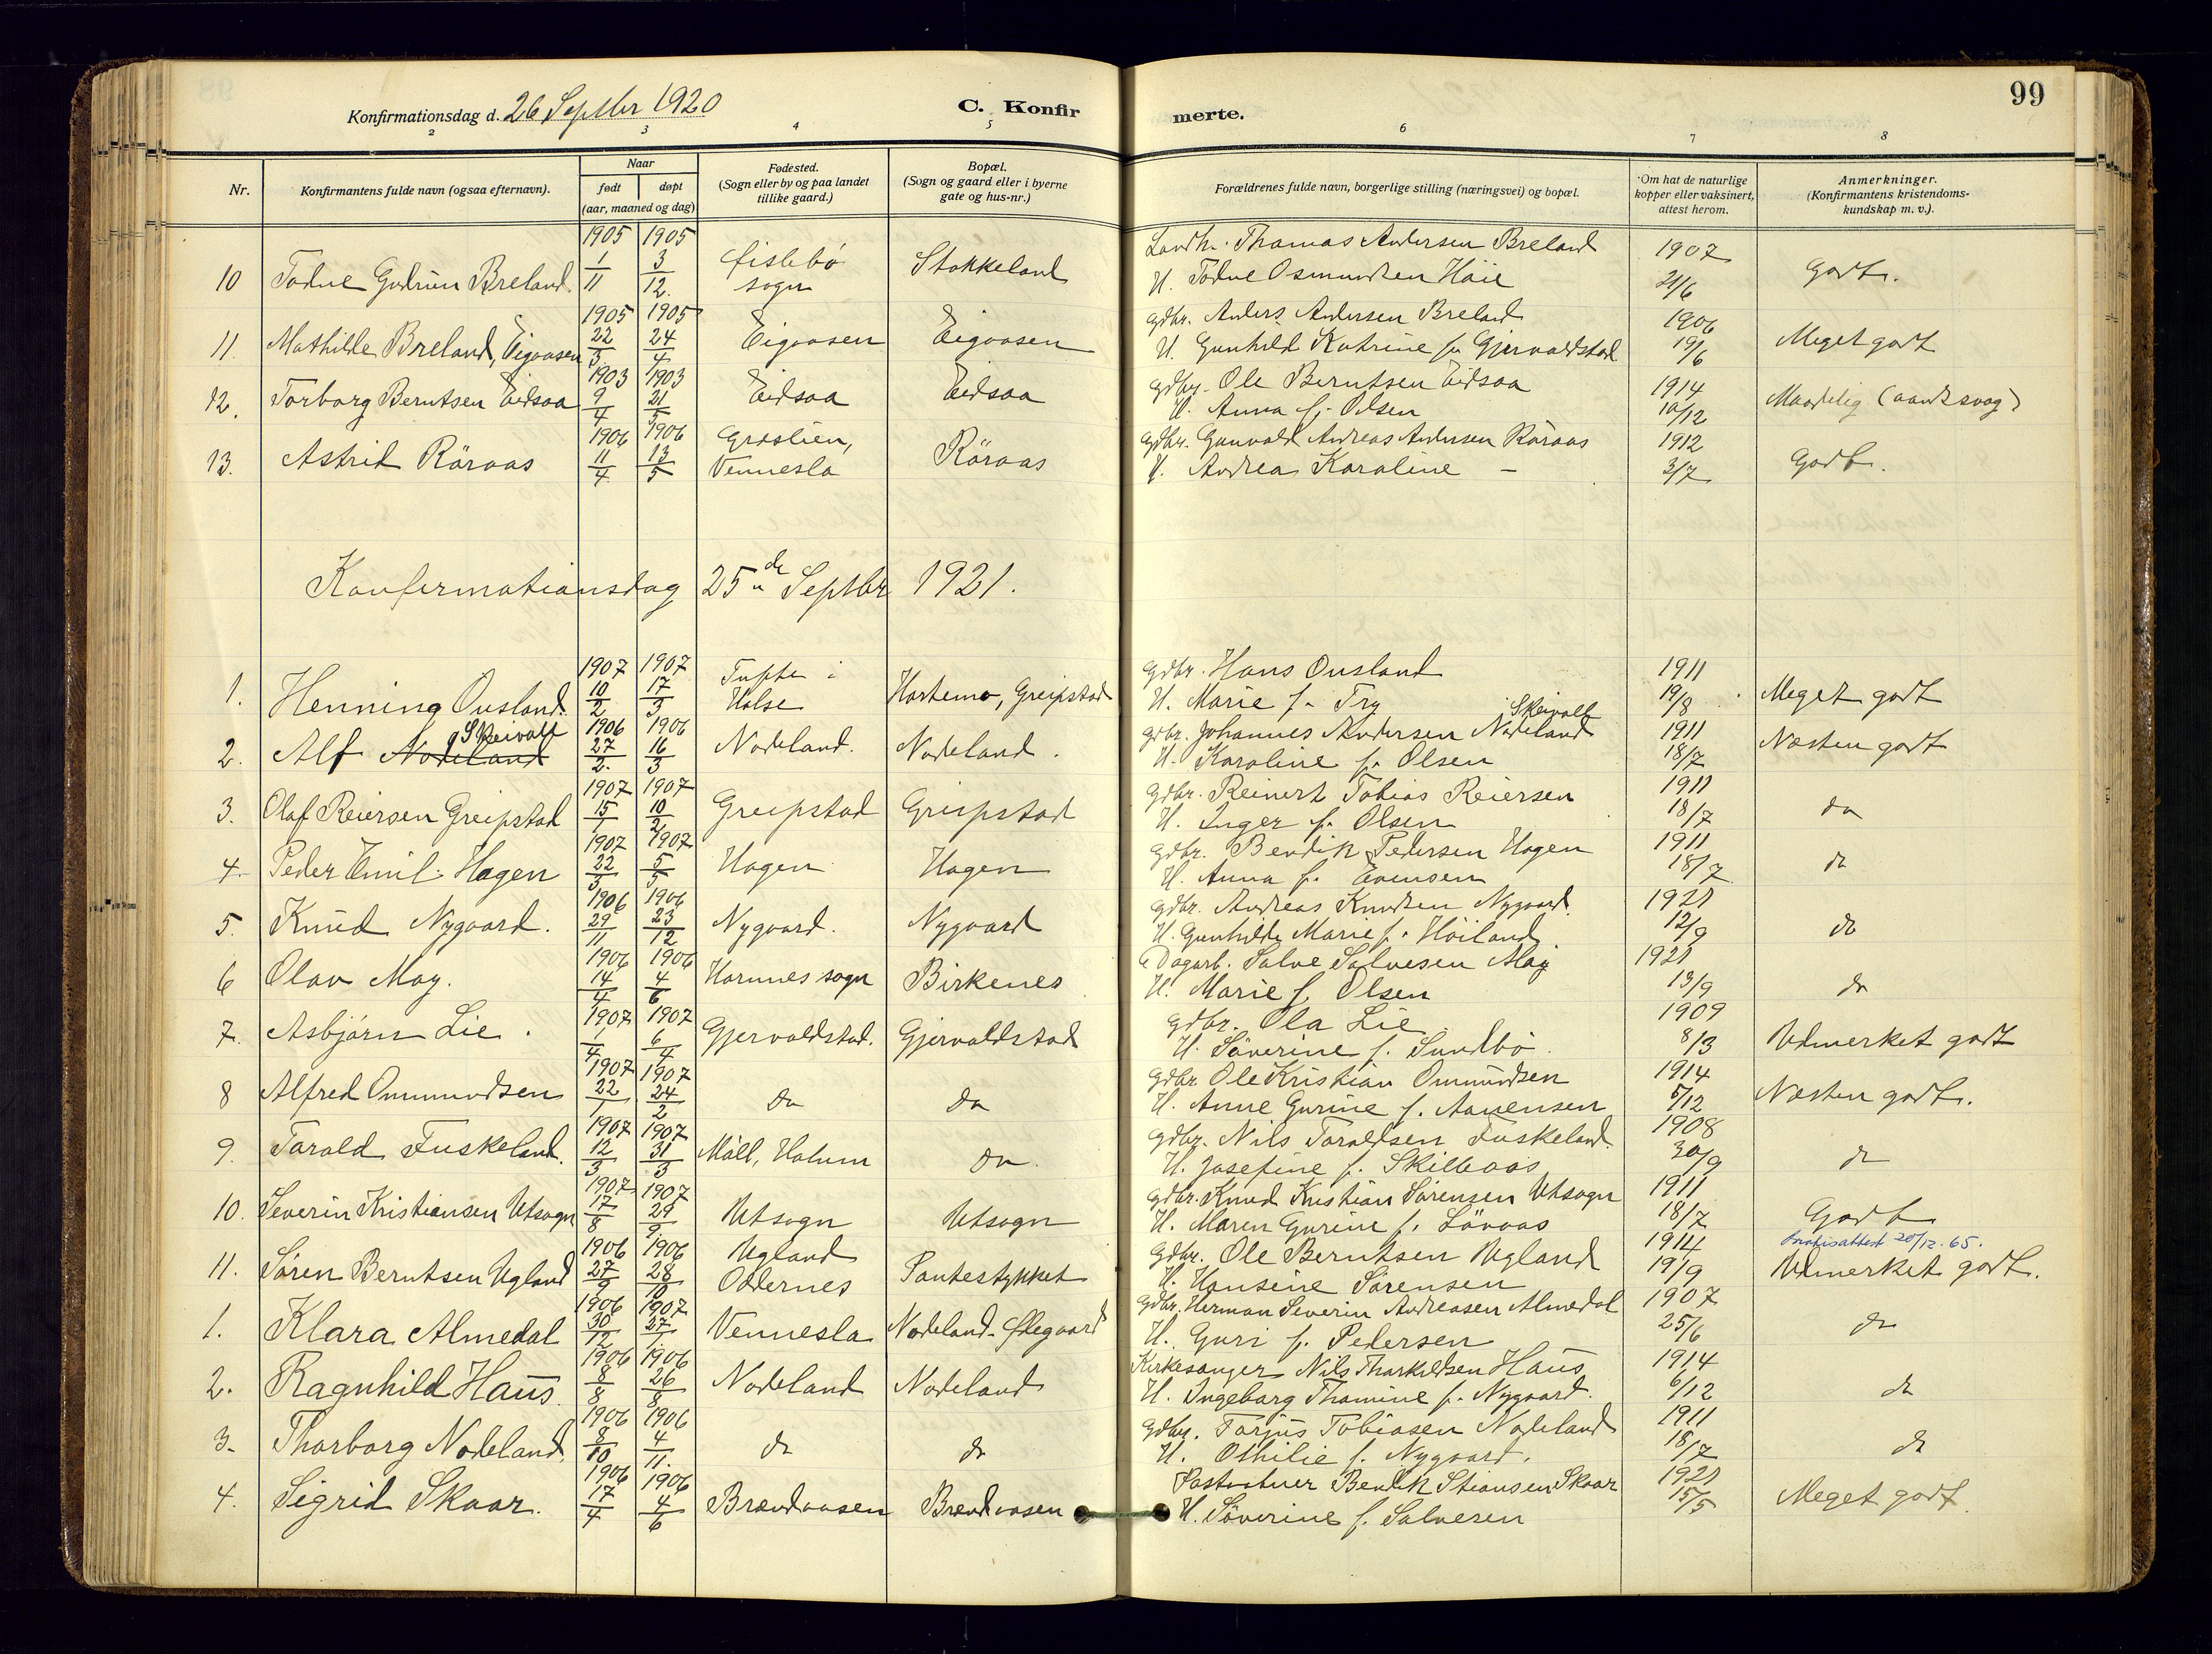 99
Konfirmationsdag d. 26 Septbr 1920
C. Konfirmerte.
2 3 4 5 6 7 8
Nr.
Konfirmantens fulde navn (ogsaa efternavn).
Naar
født døpt
(aar, maaned og dag)
Fødested.
(Sogn eller by og paa landet
tillike gaard.)
Bopæl.
(Sogn og gaard eller i byerne
gate og hus-nr.)
Forældrenes fulde navn, borgerlige stilling (næringsvei) og bopæl.
Om hat de naturlige
kopper eller vaksinert,
attest herom.
Anmerkninger.
(Konfirmantens kristendoms-
kundskap m. v.).
10 Todne Gudrun Breland 1905 1/11 1905 3/12. sogn Stokkeland
Landh. Thomas Andersen Breland 1907
H. Todne Osmundsen Höie 21/6 Godt.
11. Mathilde Breland, Eigaasen 1905 22/3 1905 24/4 Eigaasen Eigaasen
gdbr. Anders Andersen Breland 1906
H. Gunhild Katrine f. Gjervaldstad 19/6 Meget godt
12. Torborg Berntsen Eidsaa 1903 9/4 1903 21/5 Eidsaa Eidsaa
gdbr. Ole Berntsen Eidsaa 1914
H. Anna f. Olsen 10/12 Maadelig (aandssvag)
13. Astrid Röraas 1906 11/4 1906 13/5 Graslien, Vennesla Röraas
gdbr. Gunvald Andreas Andersen Röraas 1912
H. Andrea Karoline - 3/7 Godt.
Konfirmationsdag 25de Septbr 1921.
1. Henning Ousland. 1907 10/2 1907 17/3 Tufte i Halse Hortemo, Greipstad
gdbr. Hans Ousland 1911
H. Marie f. Try 19/8 Meget godt
2. Alf Nodeland Skeivoll 1906 27/2. 1906 16/3 Nodeland. Nodeland.
gdbr. Johannes Andersen Nodeland Skeivoll 1911
H. Karoline f. Olsen 18/7 Næsten godt
3. Olaf Reiersen Greipstad 1907 15/1 1907 10/2 Greipstad Greipstad
gdbr. Reinert Tobias Reiersen 1911
H. Inger f. Olsen 18/7 do
4. Peder Emil Hagen 1907 22/3 1907 5/5 Hagen Hagen
gdbr. Bendik Pedersen Hagen 1911
H. Anna f. Evensen 18/7 do
5. Knud Nygaard. 1906 29/11 1906 23/12 Nygaard. Nygaard
gdbr. Andreas Knudsen Nygaard. 1921
H. Gunhilde Marie f. Höiland 12/9 do
6 Olav Moy. 1906 14/4 1906 4/6 Hornnes sogn Birkenes
Dagarb. Salve Salvesen Moy 1921
H. Marie f. Olsen 13/9 do
7. Asbjörn Lie. 1907 1/4 1907 6/4 Gjervoldstad. Gjervoldstad
gdbr. Ola Lie. 1909
H. Söverine f. Sundbö. 8/3 Udmerket godt
8 Alfred Ommundsen 1907 22/1 1907 24/2 do do
gdbr. Ole Kristian Ommundsen 1914
H. Anne Gurine f. Aanensen 5/12 Næsten godt.
9. Torald Fuskeland. 1907 12/3 1907 31/3 Möll, Holum do.
gdbr. Nils Toraldsen Fuskeland. 1908
H. Josefine f. Skilleaas 30/9 do
10. Severin Kristiansen Utsogn 1907 17/8 1907 29/9. Utsogn Utsogn
gdbr. Knud Kristian Sörensen Utsogn 1911
H. Maren Gurine f. Lövaas 18/7 Godt
11. Sören Berntsen Ugland 1906 27/9 1906 28/10 Ugland Oddernes Pantestykket
gdbr. Ole Berntsen Ugland 1914
H. Hansine Sörensen 19/9 Udmerket godt.
20/12-65.
1. Klara Almedal 1906 30/12 1907 27/1 Vennesla Nodeland
gdbr. Herman Severin Andreasen Almedal 1907
H. Guri f. Pedersen 25/6 do
2. Ragnhild Haus. 1906 8/8 1906 26/8 Nodeland Nodeland
Kirkesanger Nils Tharkildsen Haus 1914
H. Ingeborg Thomine f. Nygaard. 6/12 do
3. Thorborg Nodeland. 1906 8/10 1906 4/11. do do
gdbr. Torjus Tobiasen Nodeland 1911
H. Othilie f. Nygaard. 18/7 do
4. Sigrid Skaar. 1906 17/4 1906 4/6 Brændaasen Brændaasen
Bendik Stiansen Skaar 1921
H. Söverine f. Salvesen 15/5 Meget godt.